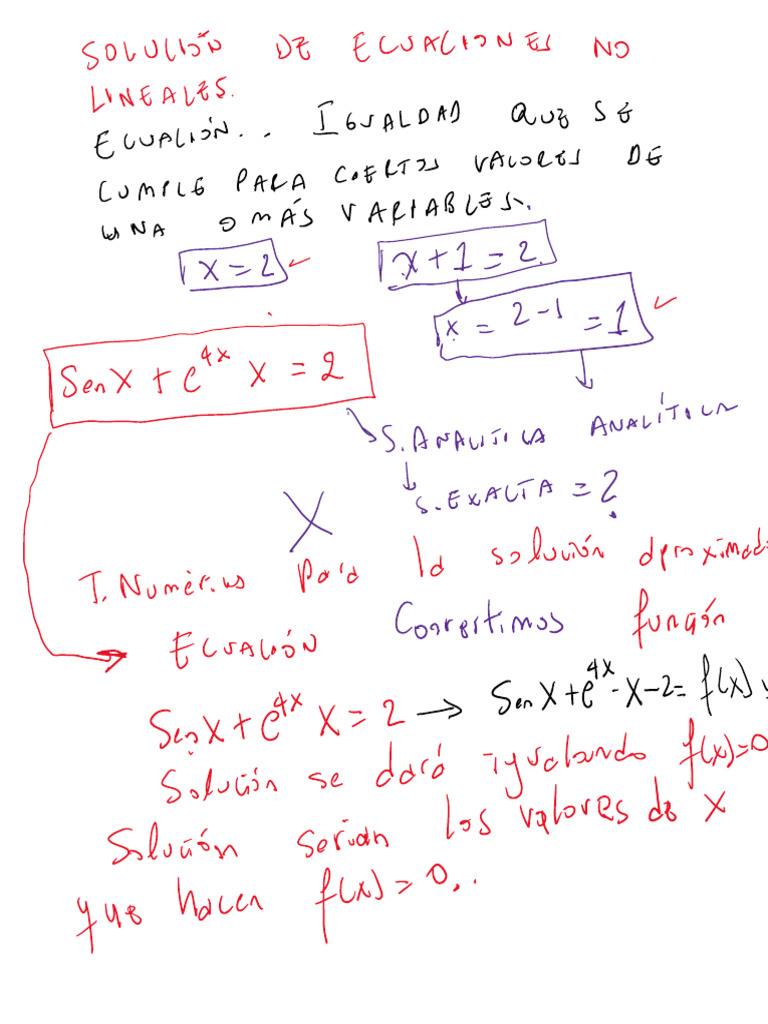 SOLUCIÓN DE ECUACIONES NO
LINEALES.
ECUACIÓN.. IGUALDAD QUE SE
CUMPLE PARA CIERTOS VALORES DE
UNA O MÁS VARIABLES.
x = 2
x + 1 = 2
x = 2 - 1 = 1
Sen x + e^{4x} x = 2
S. ANALITICA ANALÍTICA
S. EXALTA = ?
X
T. Numéricas para la solución aproximada
ECUACIÓN Convertimos función
Sen x + e^{4x} x = 2 → Sen x + e^{4x} - x - 2 = f(x)
Solución se dará igualando f(x) = 0
Solución serian los valores de x
que hacen f(x) = 0..